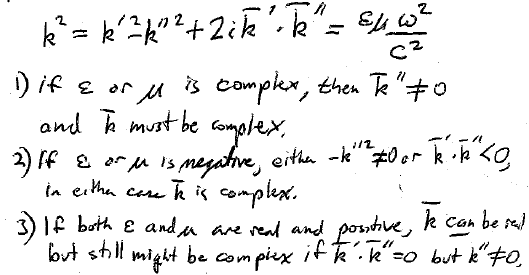 k² = k'² - k''² + 2i k̄' · k̄'' = εμ ω² / c²
1) if ε or μ is complex, then k̄'' ≠ 0
and k̄ must be complex.
2) If ε or μ is negative, either -k''² ≠ 0 or k̄' · k̄'' < 0,
in either case k̄ is complex.
3) If both ε and μ are real and positive, k̄ can be real
but still might be complex if k̄' · k̄'' = 0 but k̄'' ≠ 0.